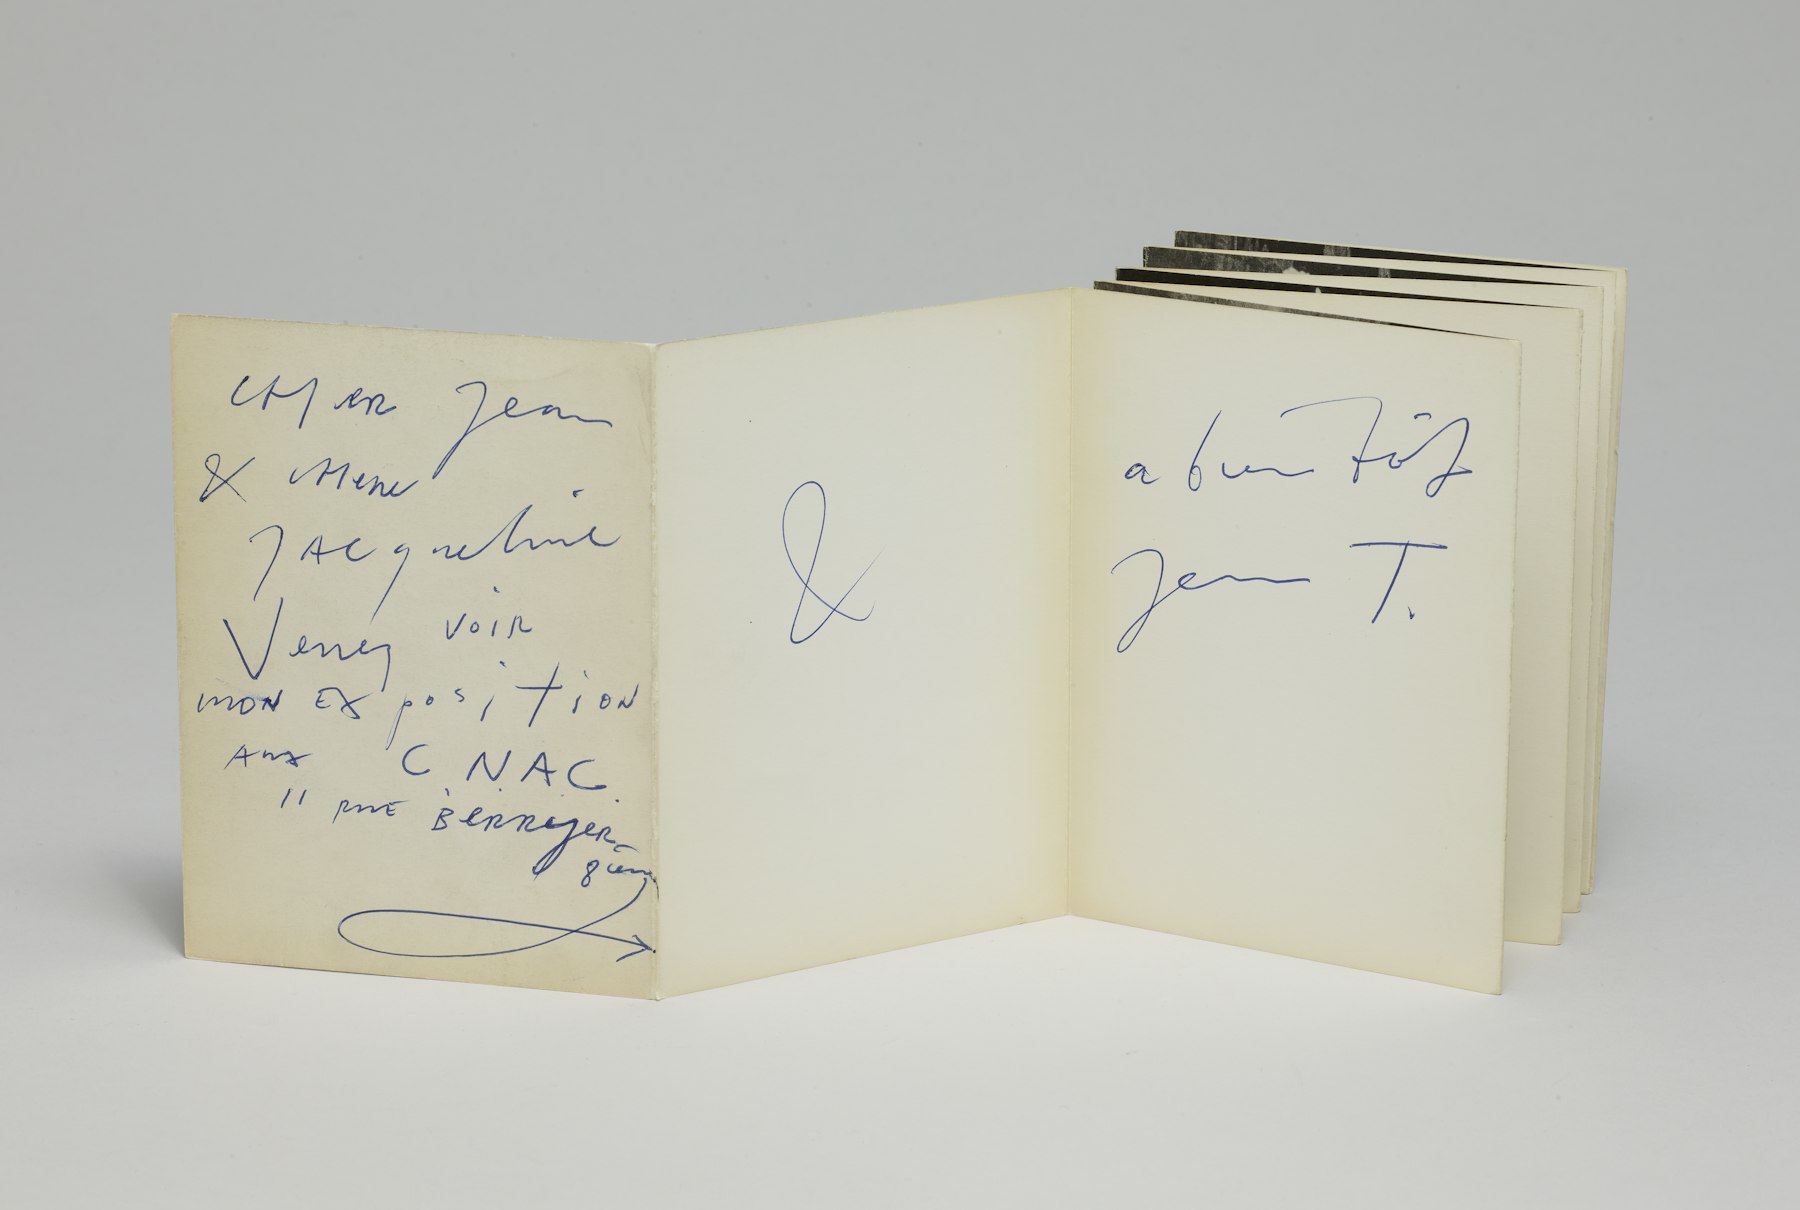 CHER Jean
& CHERE
JACqueline
Venez voir
MON EXposiTION
AUX C.N.A.C.
11 RUE BERRYER
8ième
&
a bientôt
Jean T.